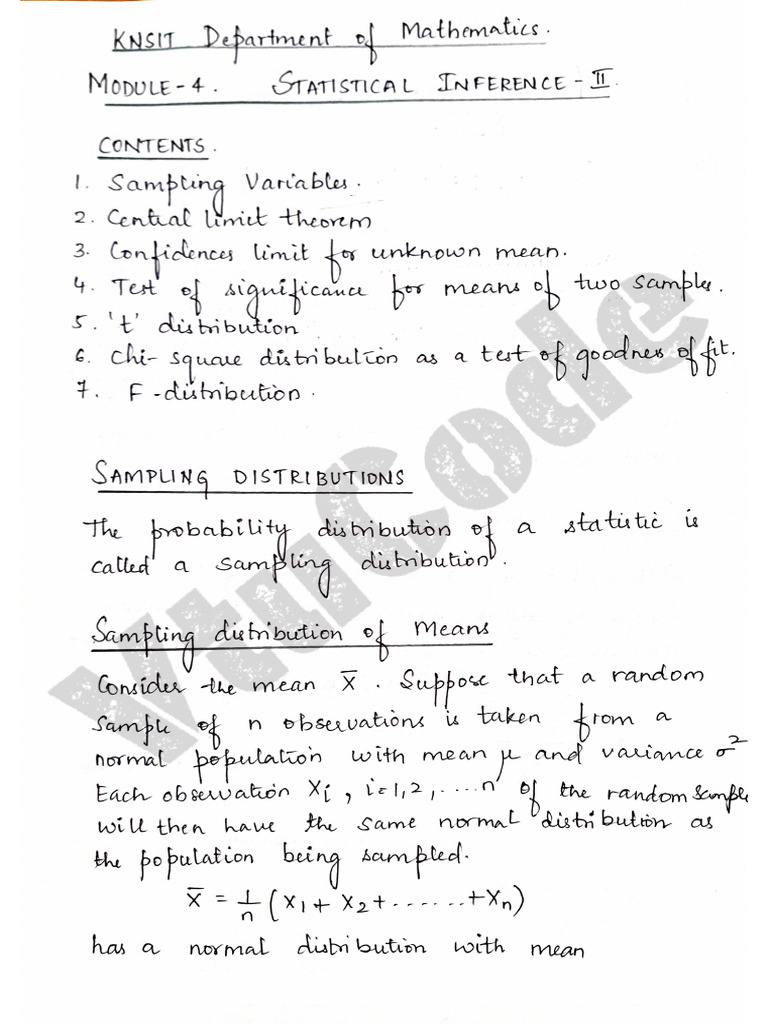 KNSIT Department of Mathematics.
MODULE-4. STATISTICAL INFERENCE-II.
CONTENTS.
1. Sampling Variables.
2. Central limit theorem
3. Confidences limit for unknown mean.
4. Test of significance for means of two samples.
5. 't' distribution
6. Chi-square distribution as a test of goodness of fit.
7. F-distribution.
SAMPLING DISTRIBUTIONS
The probability distribution of a statistic is
called a sampling distribution.
Sampling distribution of Means
Consider the mean X̅. Suppose that a random
sample of n observations is taken from a
normal population with mean μ and variance σ²
Each observation Xi, i=1,2,....n of the random sample
will then have the same normal distribution as
the population being sampled.
X̅ = 1/n (X₁+ X₂+.......+Xn)
has a normal distribution with mean
VtuCode